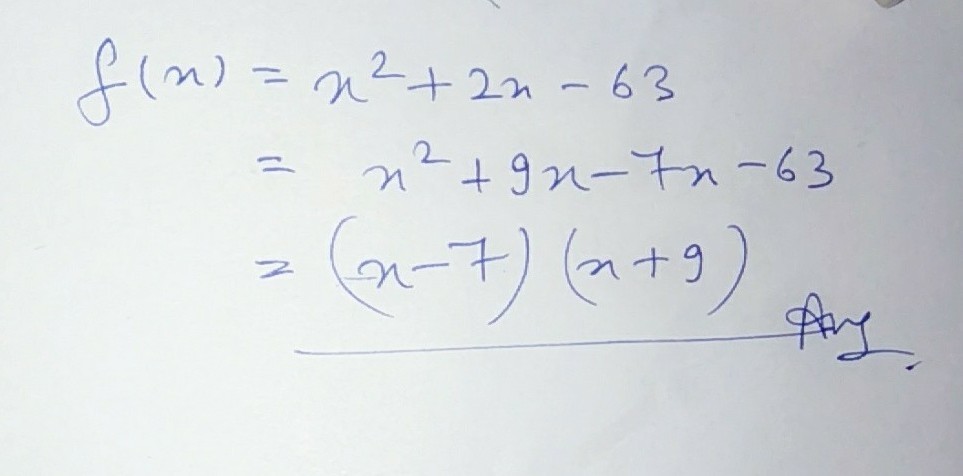 f(x) = x² + 2x - 63
= x² + 9x - 7x - 63
= (x - 7) (x + 9)
Ans